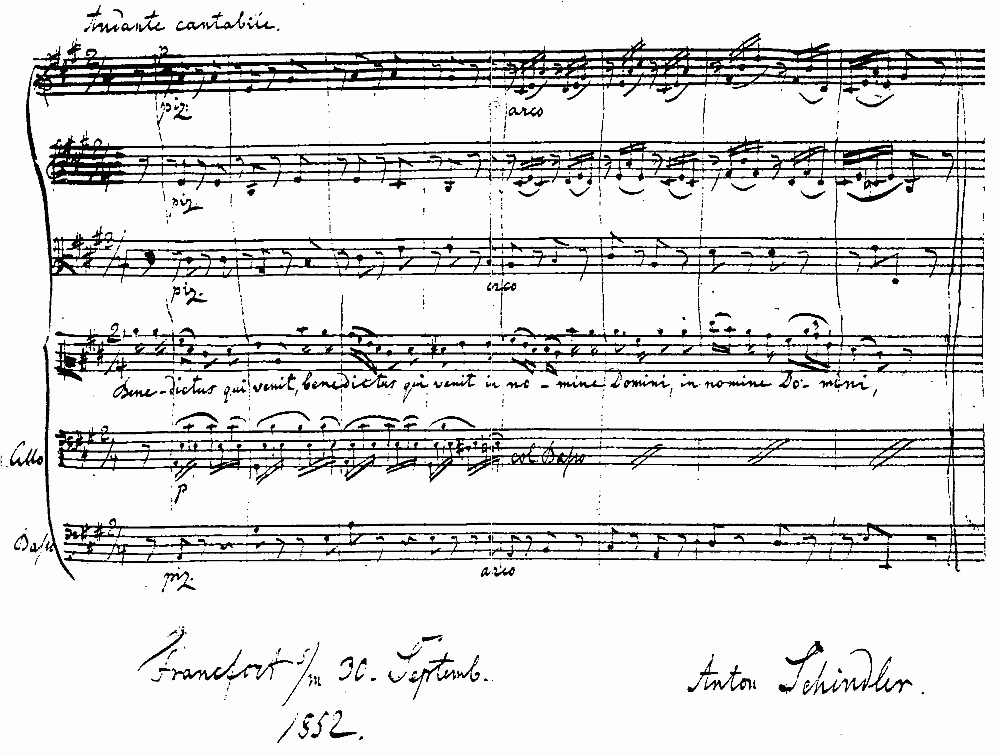 Andante cantabile.
piz. arco
piz.
piz. arco
Bene-dictus qui venit, benedictus qui venit in no-mine Domini, in nomine Do-mini,
Cello
p
col Basso
Basso
piz. arco
Francfort s/m 30. Septemb.
1852.
Anton Schindler.